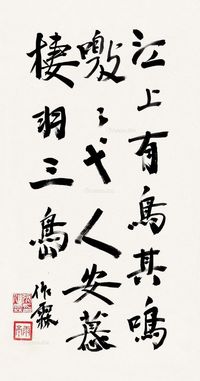 江上有鳥其鳴
嗷〻弋人安慕
棲羽三島
作霖